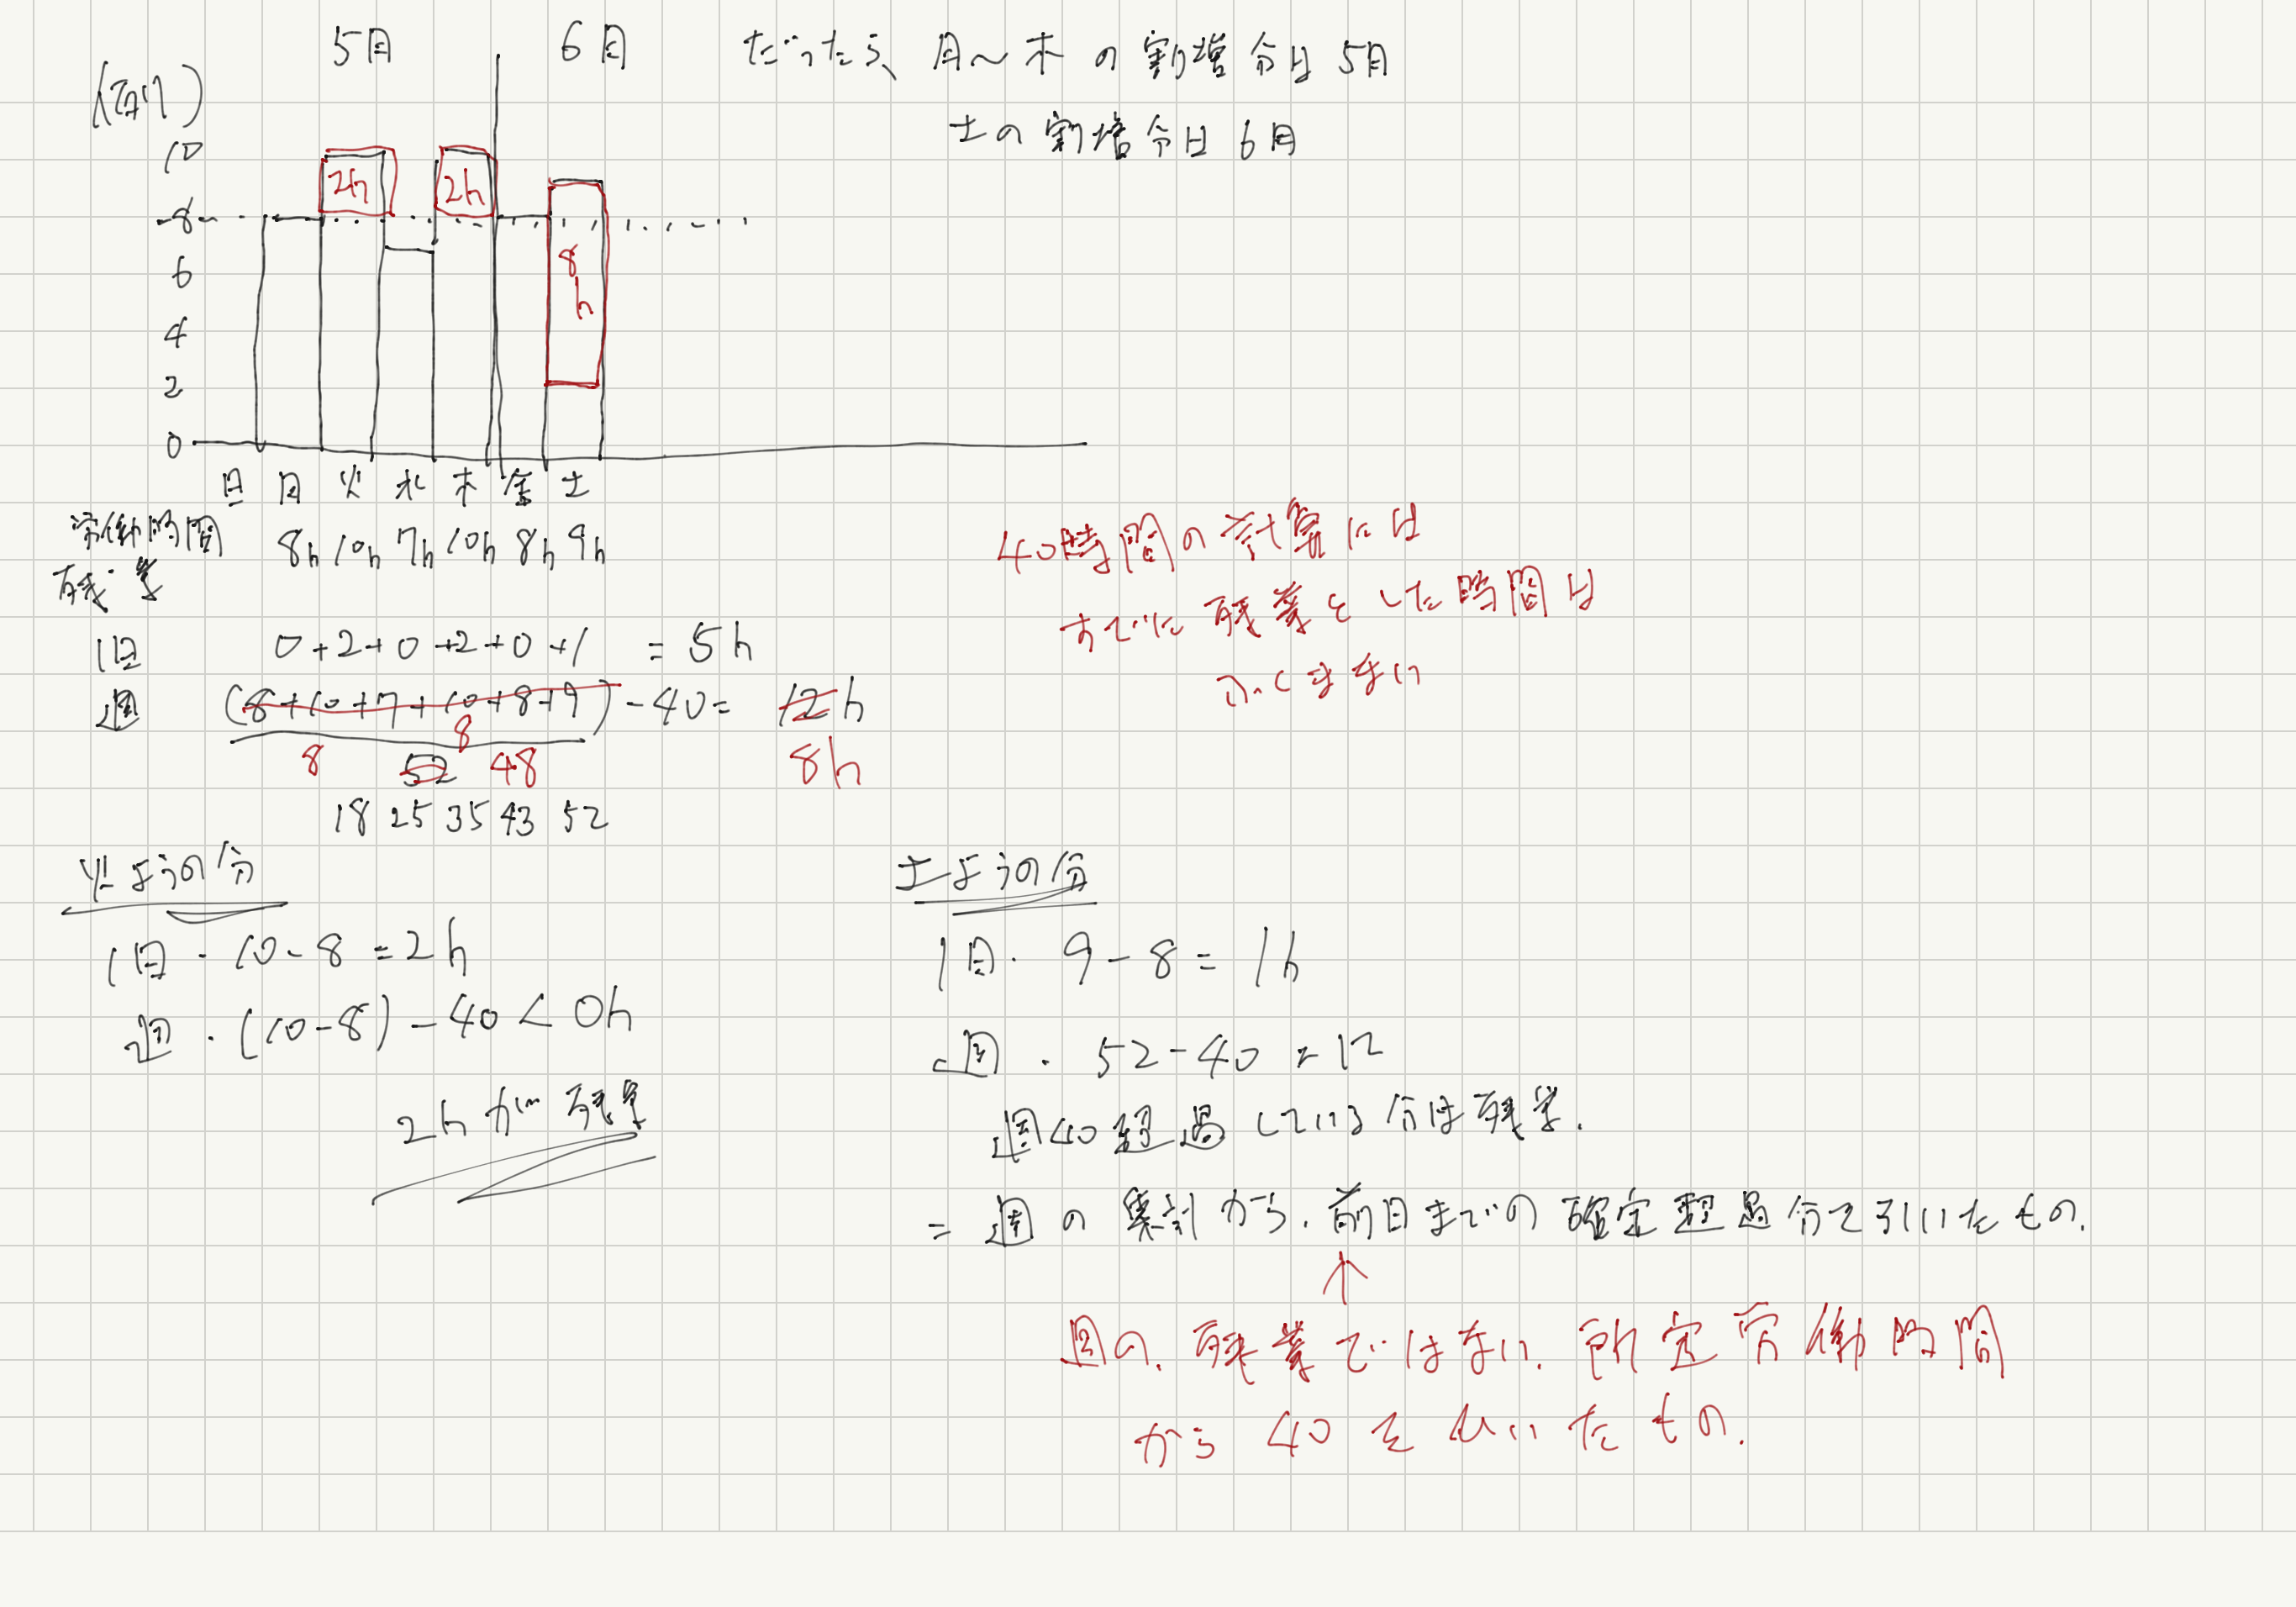 5月
6月
だったら、月〜木の割増分は5月
土の割増分は6月
(例)
10
2h
2h
8
8h
6
4
2
0
日 月 火 水 木 金 土
労働時間 8h 10h 7h 10h 8h 9h
残業
1日 0+2+0+2+0+1 = 5h
週 (8+10+7+10+8+9)-40= 12h
8 8 52 48 8h
18 25 35 43 52
40時間の計算には
すでに残業とした時間は
ふくまない
火ようの分
1日・10-8=2h
週・(10-8)-40<0h
2hが残業
土ようの分
1日・9-8=1h
週・52-40=12
週40超過している分は残業.
=週の累計から、前日までの確定超過分を引いたもの.
↑
週の、残業ではない、所定労働時間
から40をひいたもの.